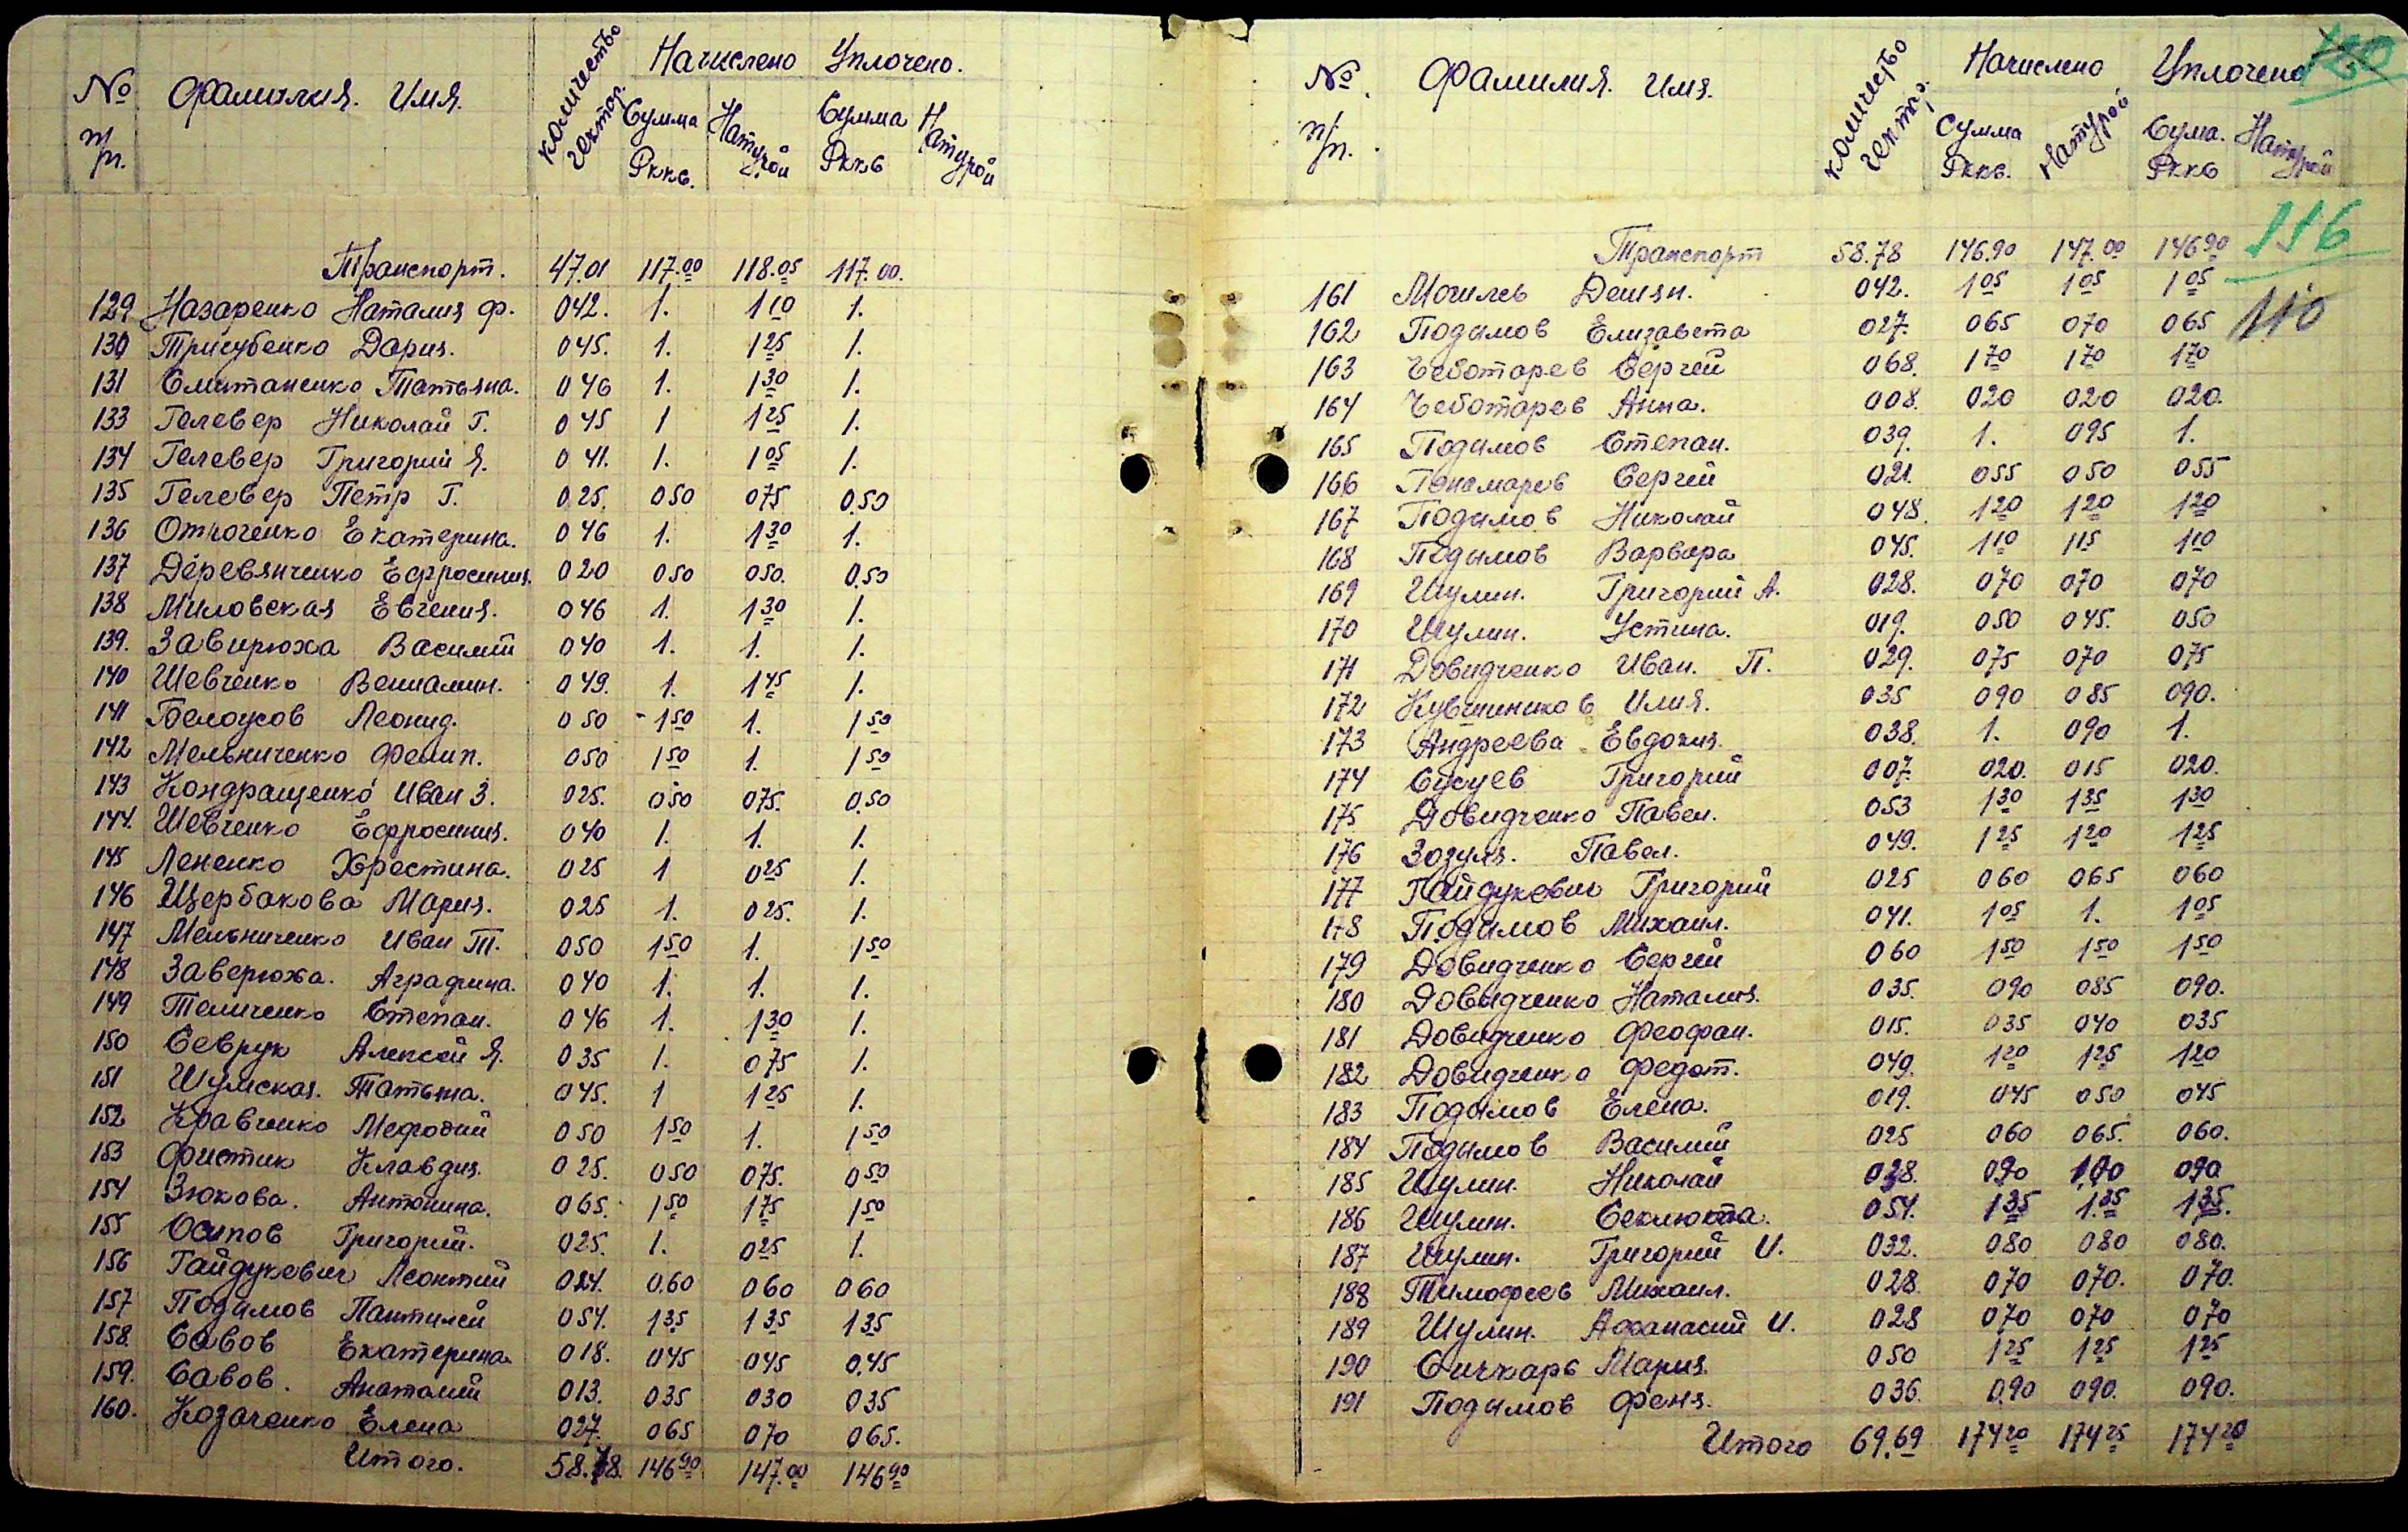 № п/п. Фамилия. Имя. количество гектар. Начислено Уплочено.
Сумма Рккв. Натурой Сумма Рккв Натурой
Транспорт. 47.01 117.00 118.05 117.00.
129 Назаренко Наталия Ф. 042. 1. 1 10 1.
130 Трисубенко Дария. 045. 1. 1 25 1.
131 Смитаненко Татьяна. 046 1. 1 30 1.
133 Гелевер Николай Г. 045 1 1 25 1.
134 Гелевер Григорий Я. 041. 1. 1 05 1.
135 Гелевер Петр Г. 025. 050 075 0.50
136 Отроченко Екатерина. 046 1. 1 30 1.
137 Деревянченко Ефросиния. 020 050 050. 0.50
138 Миловская Евгения. 046 1. 1 30 1.
139. Завирюха Василий 040 1. 1. 1.
140 Шевченко Вениамин. 049. 1. 1 45 1.
141 Белоусов Леонид. 050 - 1 50 1. 1 50
142 Мельниченко Фелип. 050 1 50 1. 1 50
143 Кондращенко Иван З. 025. 050 075. 0.50
144. Шевченко Ефросиния. 040 1. 1. 1.
145 Лененко Христина. 025 1 025 1.
146 Щербакова Мария. 025 1. 025. 1.
147 Мельниченко Иван Т. 050 1 50 1. 1 50
148 Заверюха. Аграфина. 040 1. 1. 1.
149 Теличенко Степан. 046 1. 1 30 1.
150 Севрук Алексей Я. 035 1. 075 1.
151 Шумская. Татьяна. 045. 1 1 25 1.
152 Кравченко Мефодий 050 1 50 1. 1 50
153 Фистик Клавдия. 025. 050 075. 050
154 Зюкова. Антонина. 065. 1 50 1 75 1 50
155 Осипов Григорий. 025. 1. 025 1.
156 Гайдукевич Леонтий 024. 0.60 060 060
157 Подымов Пантилей 054. 1 35 1 35 1 35
158. Савов Екатерина. 018. 045 045 0.45
159. Савов. Анатолий 013. 035 030 035
160. Козаченко Елена 027. 065 070 065.
Итого. 58.78. 146 90 147.00 146 90
№. п/п. Фамилия. Имя. количество гектар. Начислено Уплочено
Сумма Рккв. Натурой Сума. Рккв Натурой
116
Транспорт 58.78 146.90 147.00 146 90
110
161 Могилев Демян. 042. 1 05 1 05 1 05
162 Подымов Елизавета 027. 065 070 065
163 Чеботарев Сергей 068. 1 70 1 70 1 70
164 Чеботарев Анна. 008. 020 020 020.
165 Подымов Степан. 039. 1. 095 1.
166 Пономарев Сергей 021. 055 050 055
167 Подымов Николай 048. 1 20 1 20 1 20
168 Подымов Варвара 045. 1 10 1 15 1 10
169 Шулин. Григорий А. 028. 070 070 070
170 Шулин. Устина. 019. 050 045. 050
171 Довидченко Иван. П. 029. 075 070 075
172 Кувшинников Илия. 035 090 085 090.
173 Андреева Евдокия. 038. 1. 090 1.
174 Сусуев Григорий 007. 020. 015 020.
175 Довидченко Павел. 053 1 30 1 35 1 30
176 Зозуля. Павел. 049. 1 25 1 20 1 25
177 Гайдукевич Григорий 025 060 065 060
178 Подымов Михаил. 041. 1 05 1. 1 05
179 Довидченко Сергей 060 1 50 1 50 1 50
180 Довидченко Наталия. 035. 090 085 090.
181 Довидченко Феофан. 015. 035 040 035
182 Довидченко Федот. 049. 1 20 1 25 1 20
183 Подымов Елена. 019. 045 050 045
184 Подымов Василий 025 060 065. 060.
185 Шулин. Николай 038. 090 100 090
186 Шулин. Секлюта. 054. 1 35 1.35 1 35.
187 Шулин. Григорий И. 032. 080 080 080.
188 Тимофеев Михаил. 028. 070 070. 070.
189 Шулин. Афанасий И. 028 070 070 070
190 Сичкарь Мария. 050 1 25 1 25 1 25
191 Подымов Феня. 036. 0.90 090. 090.
Итого 69.69 174 20 174 25 174 20